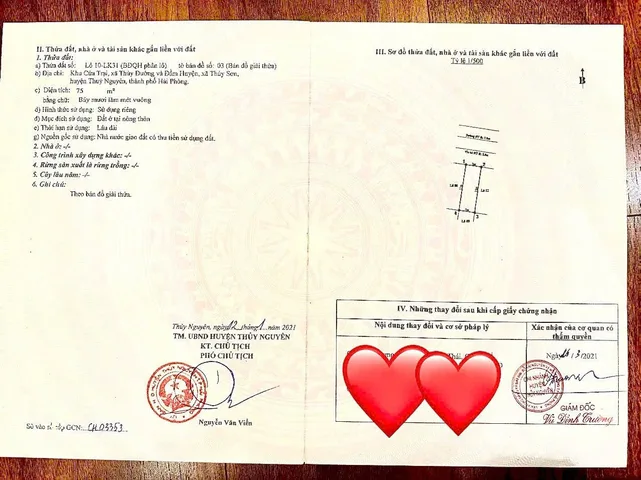 II. Thửa đất, nhà ở và tài sản khác gắn liền với đất
1. Thửa đất:
a) Thửa đất số: Lô 10-LK31 (BĐQH phân lô) tờ bản đồ số: 03 (Bản đồ giải thửa)
b) Địa chỉ: Khu Cửa Trại, xã Thủy Đường và Đầm Huyện, xã Thủy Sơn,
huyện Thuỷ Nguyên, thành phố Hải Phòng.
c) Diện tích: 75 m²
bằng chữ: Bảy mươi lăm mét vuông
d) Hình thức sử dụng: Sử dụng riêng
đ) Mục đích sử dụng: Đất ở tại nông thôn
e) Thời hạn sử dụng: Lâu dài
g) Nguồn gốc sử dụng: Nhà nước giao đất có thu tiền sử dụng đất.
2. Nhà ở: -/-
3. Công trình xây dựng khác: -/-
4. Rừng sản xuất là rừng trồng: -/-
5. Cây lâu năm: -/-
6. Ghi chú:
Theo bản đồ giải thửa.
Thủy Nguyên, ngày 12 tháng 1 năm 2021
TM. UBND HUYỆN THỦY NGUYÊN
KT. CHỦ TỊCH
PHÓ CHỦ TỊCH
Nguyễn Văn Viển
Số vào sổ cấp GCN: CH05353
III. Sơ đồ thửa đất, nhà ở và tài sản khác gắn liền với đất
Tỷ lệ 1/500
B
IV. Những thay đổi sau khi cấp giấy chứng nhận
Nội dung thay đổi và cơ sở pháp lý
Xác nhận của cơ quan có
thẩm quyền
Ngày 3/2021
CHI NHÁNH
HUYỆN
GIÁM ĐỐC
Vũ Đình Trường